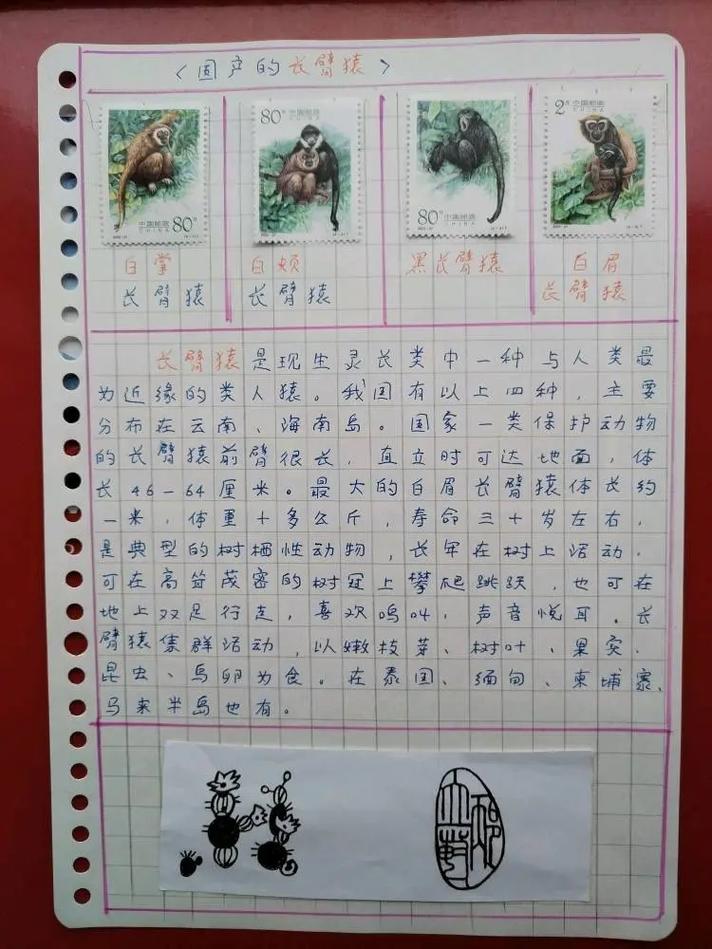 〈国产的长臂猿〉
中国邮政 80分
CHINA
80分 中国邮政
CHINA
80分 中国邮政
CHINA
2元 中国邮政
CHINA
白掌
长臂猿
白颊
长臂猿
黑长臂猿
白眉
长臂猿
长臂猿是现生灵长类中一种与人类最
为近缘的类人猿。我国有以上四种，主要
分布在云南、海南岛。国家一类保护动物
的长臂猿前臂很长，直立时可达地面，体
长46—64厘米。最大的白眉长臂猿体长约
一米，体重十多公斤，寿命三十岁左右，
是典型的树栖性动物，长年在树上活动．
可在高耸茂密的树冠上攀爬跳跃，也可在
地上双足行走，喜欢鸣叫，声音悦耳。长
臂猿集群活动，以嫩枝芽、树叶、果实、
昆虫、鸟卵为食。在泰国、缅甸、柬埔寨、
马来半岛也有。